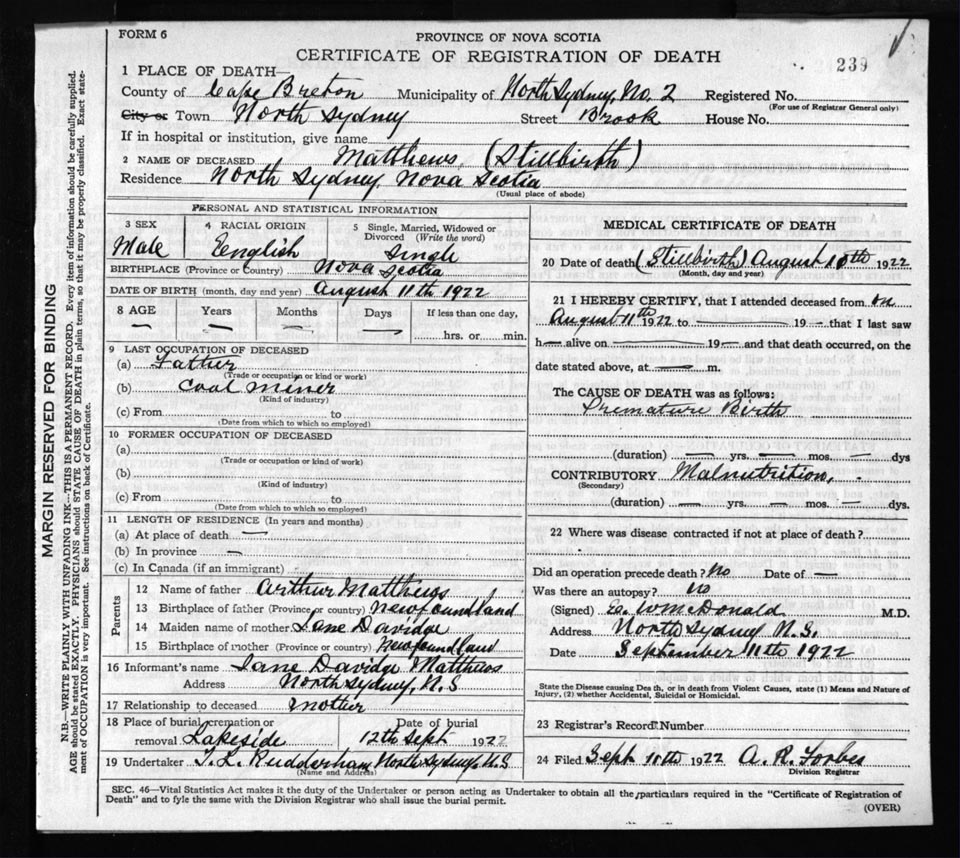 FORM 6
PROVINCE OF NOVA SCOTIA
CERTIFICATE OF REGISTRATION OF DEATH
239
1 PLACE OF DEATH—
County of Cape Breton Municipality of North Sydney, No. 2 Registered No.
(For use of Registrar General only)
City or Town North Sydney Street Brook House No.
If in hospital or institution, give name
2 NAME OF DECEASED Matthews (Stillbirth)
Residence North Sydney, Nova Scotia
(Usual place of abode)
PERSONAL AND STATISTICAL INFORMATION
3 SEX Male
4 RACIAL ORIGIN English
5 Single, Married, Widowed or Divorced (Write the word) Single
BIRTHPLACE (Province or Country) Nova Scotia
DATE OF BIRTH (month, day and year) August 11th 1922
8 AGE Years Months Days If less than one day,
— — — — hrs. or min.
9 LAST OCCUPATION OF DECEASED
(a) Father
(Trade or occupation or kind of work)
(b) Coal miner
(Kind of industry)
(c) From to
(Date from which to which so employed)
10 FORMER OCCUPATION OF DECEASED
(a)
(Trade or occupation or kind of work)
(b)
(Kind of industry)
(c) From to
(Date from which to which so employed)
11 LENGTH OF RESIDENCE (In years and months)
(a) At place of death —
(b) In province —
(c) In Canada (if an immigrant)
Parents
12 Name of father Arthur Matthews
13 Birthplace of father (Province or country) Newfoundland
14 Maiden name of mother Jane Davidge
15 Birthplace of mother (Province or country) Newfoundland
16 Informant's name Jane Davidge Matthews
Address North Sydney, N.S
17 Relationship to deceased mother
18 Place of burial, cremation or Date of burial
removal Lakeside 12th Sept 1922
19 Undertaker T. L. Rudderham North Sydney N.S
(Name and Address)
MEDICAL CERTIFICATE OF DEATH
20 Date of death (Stillbirth) August 1922
(Month, day and year)
21 I HEREBY CERTIFY, that I attended deceased from on
August 11th 1922 to — 19 — that I last saw
h— alive on — 19 — and that death occurred, on the
date stated above, at — m.
The CAUSE OF DEATH was as follows:
Premature Birth
(duration) — yrs. — mos. — dys
CONTRIBUTORY Malnutrition.
(Secondary)
(duration) — yrs. — mos. — dys.
22 Where was disease contracted if not at place of death?
Did an operation precede death? No Date of —
Was there an autopsy? No
(Signed) McDonald M.D.
Address North Sydney N.S.
Date September 11th 1922
State the Disease causing Death, or in death from Violent Causes, state (1) Means and Nature of
Injury, (2) whether Accidental, Suicidal or Homicidal.
23 Registrar's Record Number
24 Filed Sept 11th 1922 A. R. Forbes
Division Registrar
SEC. 46—Vital Statistics Act makes it the duty of the Undertaker or person acting as Undertaker to obtain all the particulars required in the "Certificate of Registration of
Death" and to fyle the same with the Division Registrar who shall issue the burial permit.
(OVER)
MARGIN RESERVED FOR BINDING
N.B.—WRITE PLAINLY WITH UNFADING INK—THIS IS A PERMANENT RECORD. Every item of information should be carefully supplied.
AGE should be stated EXACTLY. PHYSICIANS should STATE CAUSE OF DEATH in plain terms, so that it may be properly classified. Exact state-
ment of OCCUPATION is very important. See instructions on back of Certificate.